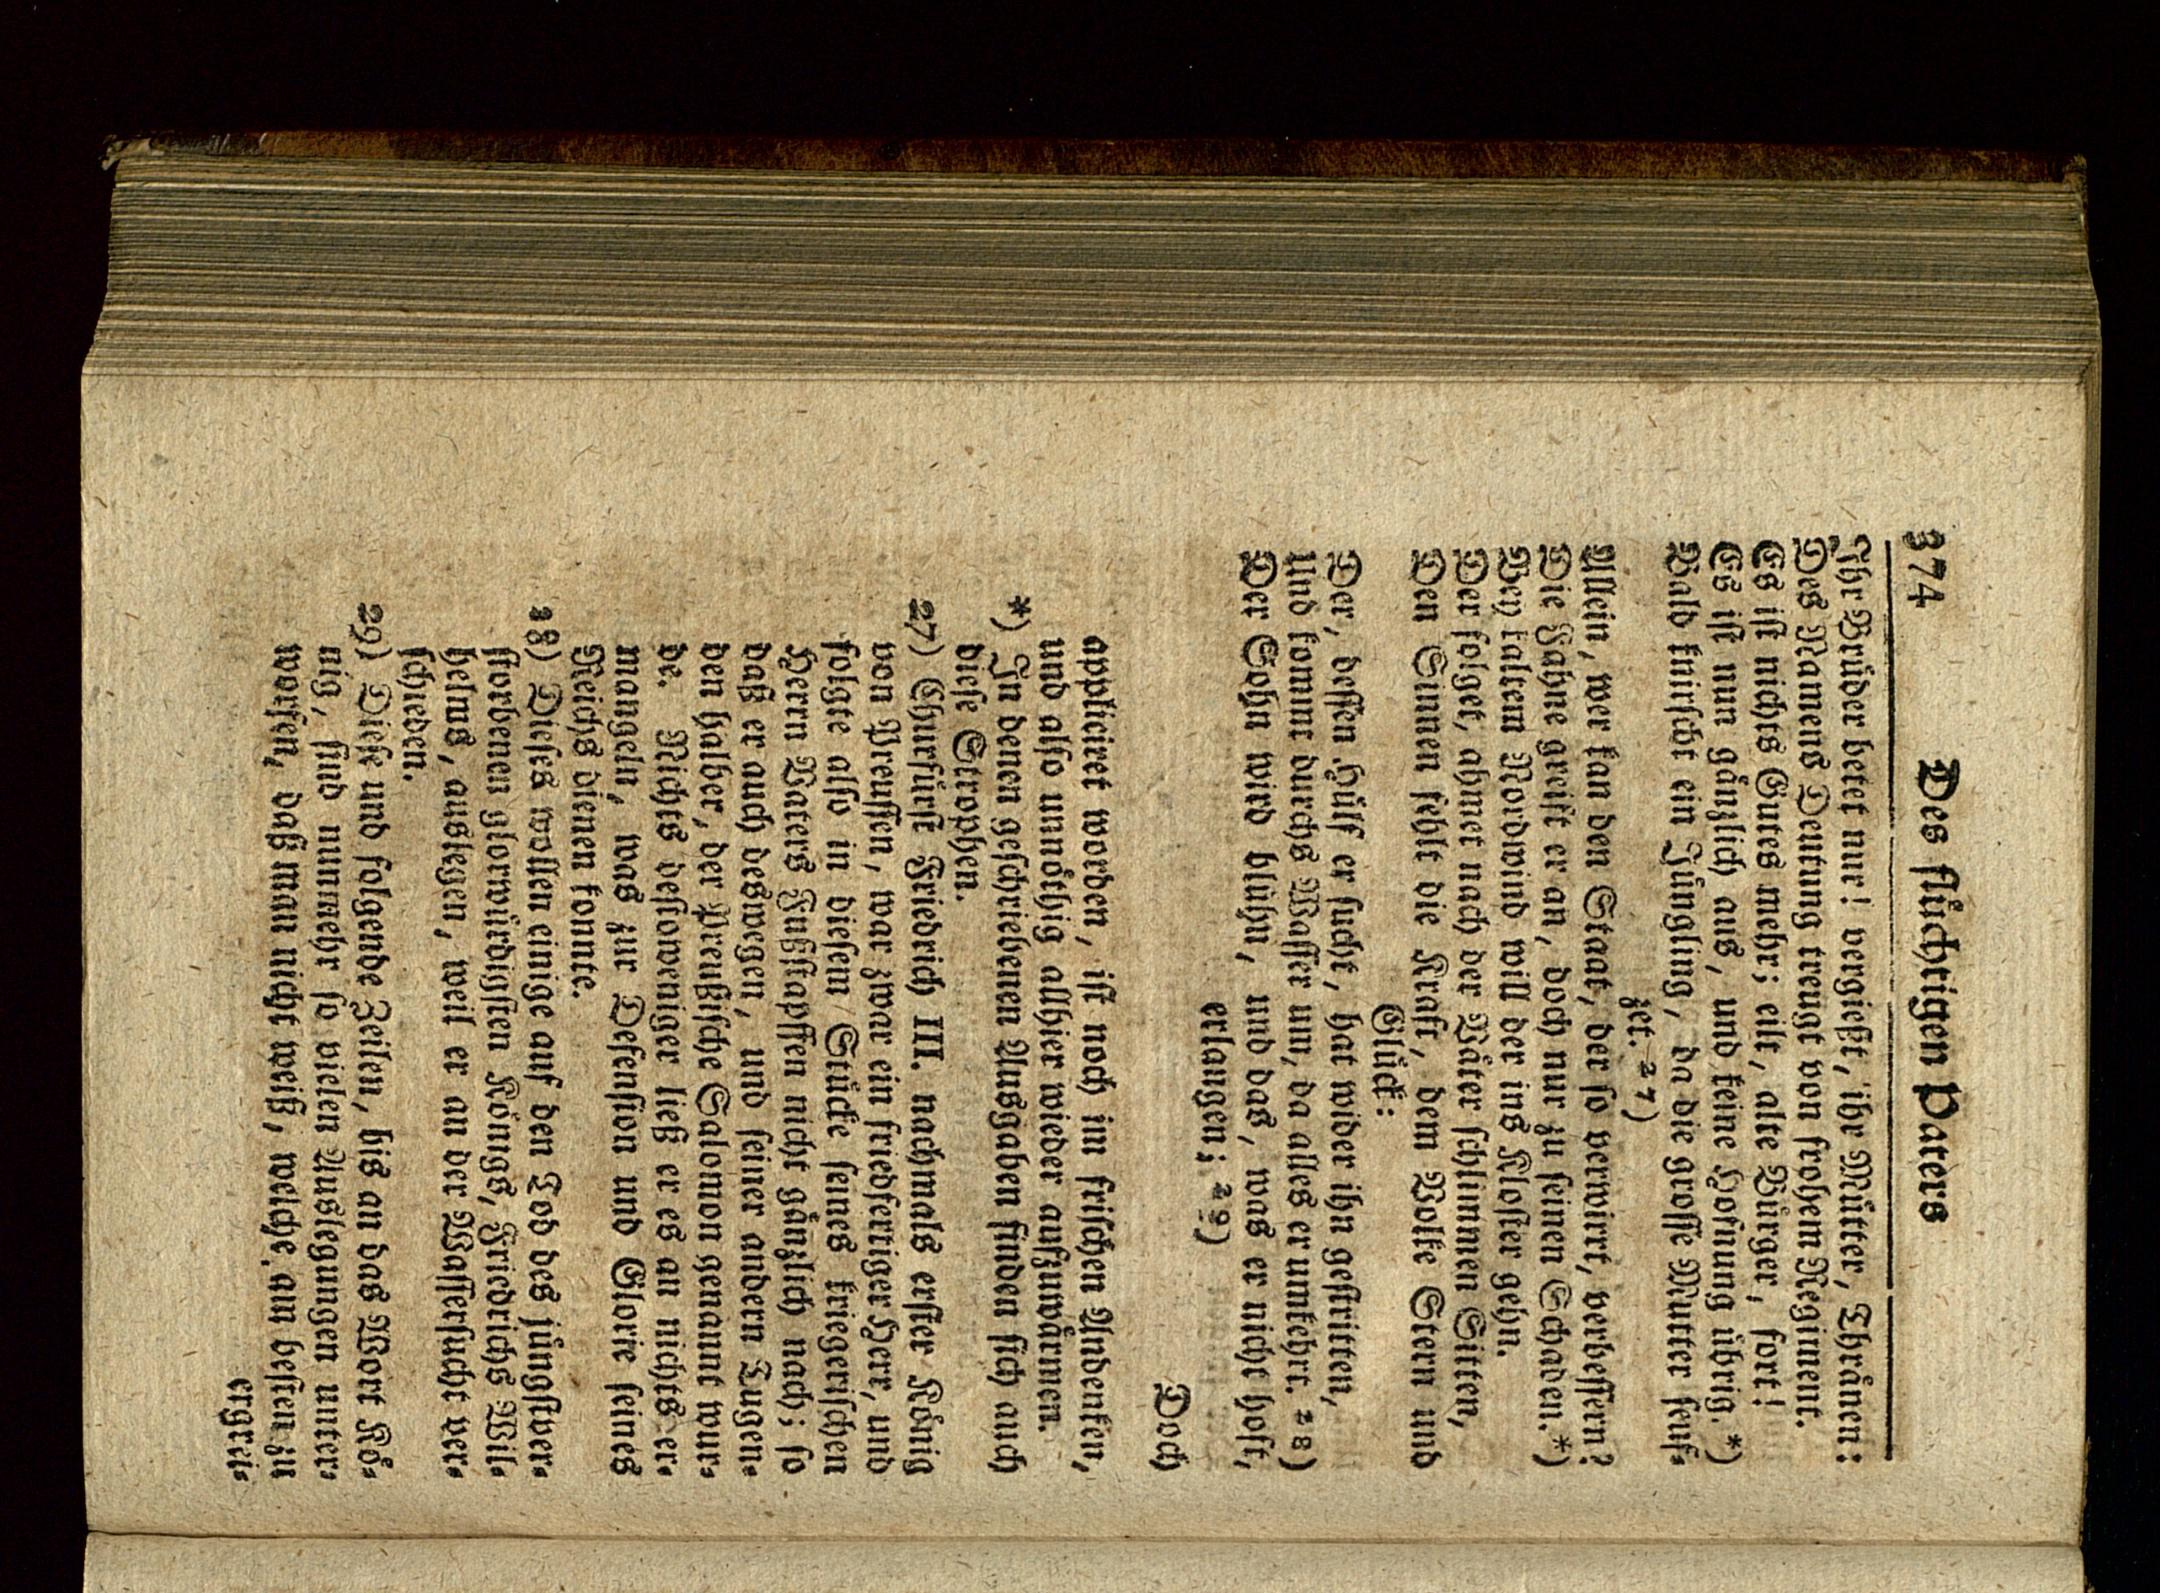 374 Des flüchtigen Paters
Ihr Brüder betet nur! vergießt, ihr Mütter, Thränen:
Des Nannens Deutung treugt von frohem Regiment.
Es ist nichts Gutes mehr; eilt, alte Bürger, fort!
Es ist nun gänzlich aus, und keine Hofnung übrig. *)
Bald knirscht ein Jüngling, da die grosse Mutter seuf-
zet. 27)
Allein, wer kan den Staat, der so verwirrt, verbessern?
Die Fahne greift er an, doch nur zu seinen Schaden. *)
Bey kaltem Nordwind will der ins Kloster gehn.
Der folget, ahmet nach der Väter schlimmen Sitten,
Den Sinnen fehlt die Kraft, dem Volke Stern und
Glück:
Der, dessen Hülf er sucht, hat wider ihn gestritten,
Und kommt durchs Wasser um, da alles er umkehrt. 28)
Der Sohn wird blühn, und das, was er nicht hoft,
erlangen; 29)
Doch
appliciret worden, ist noch im frischen Andenken,
und also unnöthig allhier wieder aufzuwärmen.
*) In denen geschriebenen Ausgaben finden sich auch
diese Strophen.
27) Churfürst Friedrich III. nachmals erster König
von Preussen, war zwar ein friedfertiger Herr, und
folgte also in diesem Stücke seines kriegerischen
Herrn Vaters Fußstapffen nicht gänzlich nach; so
daß er auch deswegen, und seiner andern Tugen-
den halber, der Preußische Salomon genannt wur-
de. Nichts destoweniger ließ er es an nichts er-
mangeln, was zur Defension und Glorie seines
Reichs dienen konnte.
28) Dieses wollen einige auf den Tod des jüngstver-
storbenen glorwürdigsten Königs, Friedrichs Wil-
helms, auslegen, weil er an der Wassersucht ver-
schieden.
29) Diese und folgende Zeilen, bis an das Wort Kö-
nig, sind nunmehr so vielen Auslegungen unter-
worfen, daß man nicht weiß, welche am besten zu
ergrei-